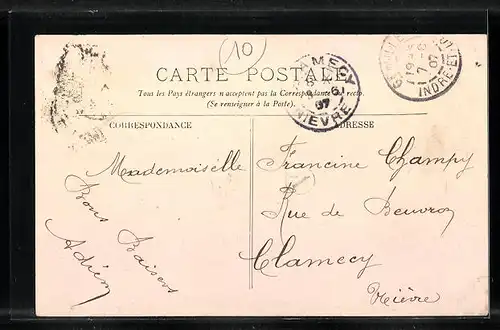 10
CARTE POSTALE
Tous les Pays étrangers n'acceptent pas la Correspondance recto.
(Se renseigner à la Poste).
CLAMECY
NIÈVRE
07
INDRE-ET-
07
CORRESPONDANCE
ADRESSE
Mademoiselle Francine Champy
Rue de Beuvron
Clamecy
Nièvre
Bons Baisers
Adrien